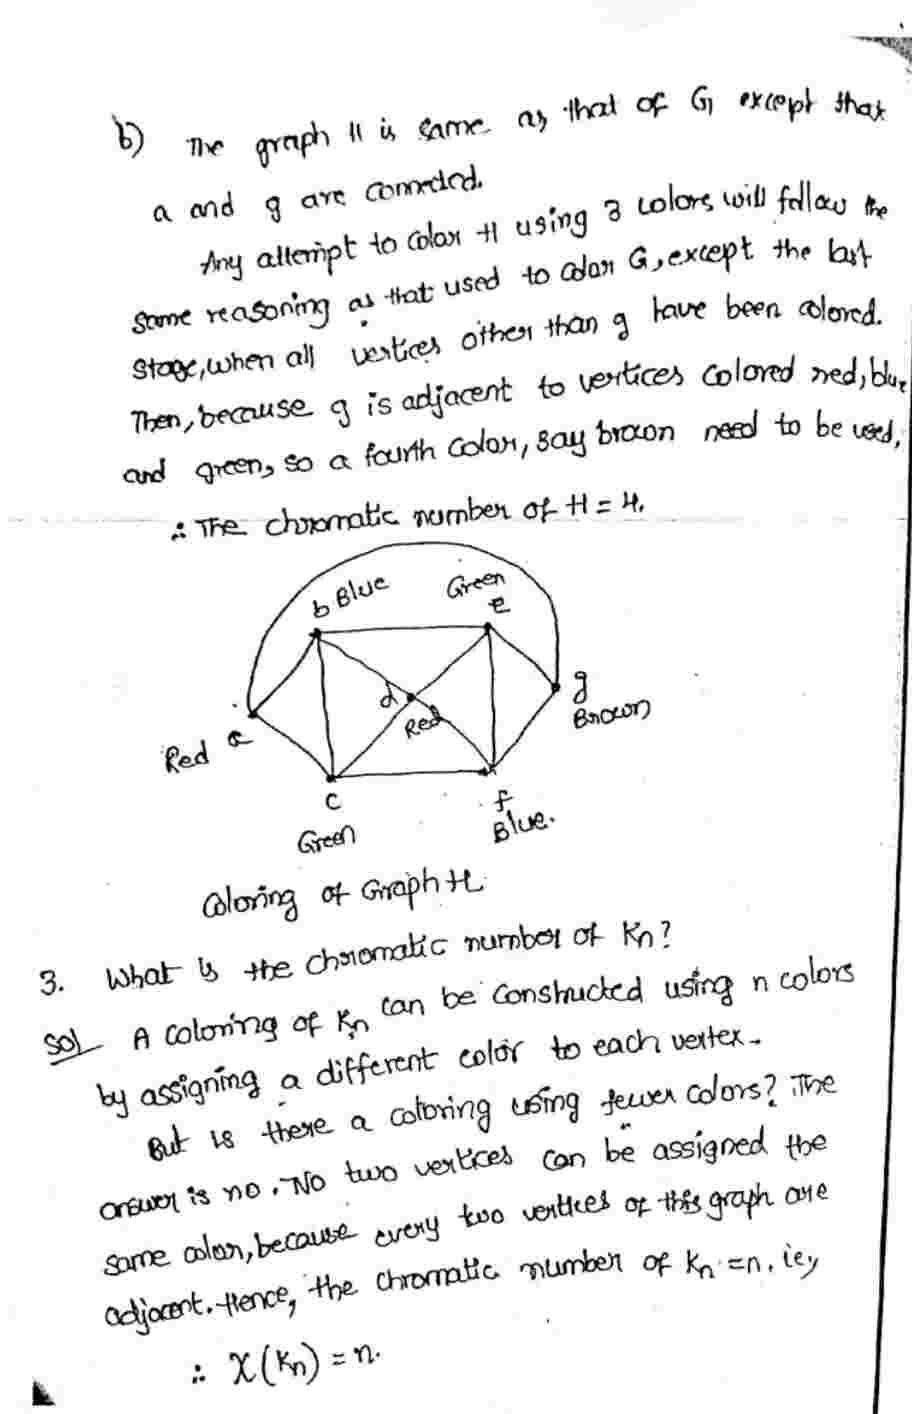 b) The graph H is same as that of G, except that
a and g are connected.
Any attempt to color H using 3 colors will follow the
same reasoning as that used to color G, except the last
stage, when all vertices other than g have been colored.
Then, because g is adjacent to vertices colored red, blue
and green, so a fourth color, say brown need to be used,
∴ The chromatic number of H = 4.
b Blue
Green
e
d
Red
g
Brown
Red a
c
Green
f
Blue.
Coloring of Graph H
3. What is the chromatic number of Kn?
Sol A coloring of Kn can be constructed using n colors
by assigning a different color to each vertex.
But is there a coloring using fewer colors? The
answer is no. No two vertices can be assigned the
same color, because every two vertices of this graph are
adjacent. Hence, the chromatic number of Kn = n. ie,
∴ χ(Kn) = n.